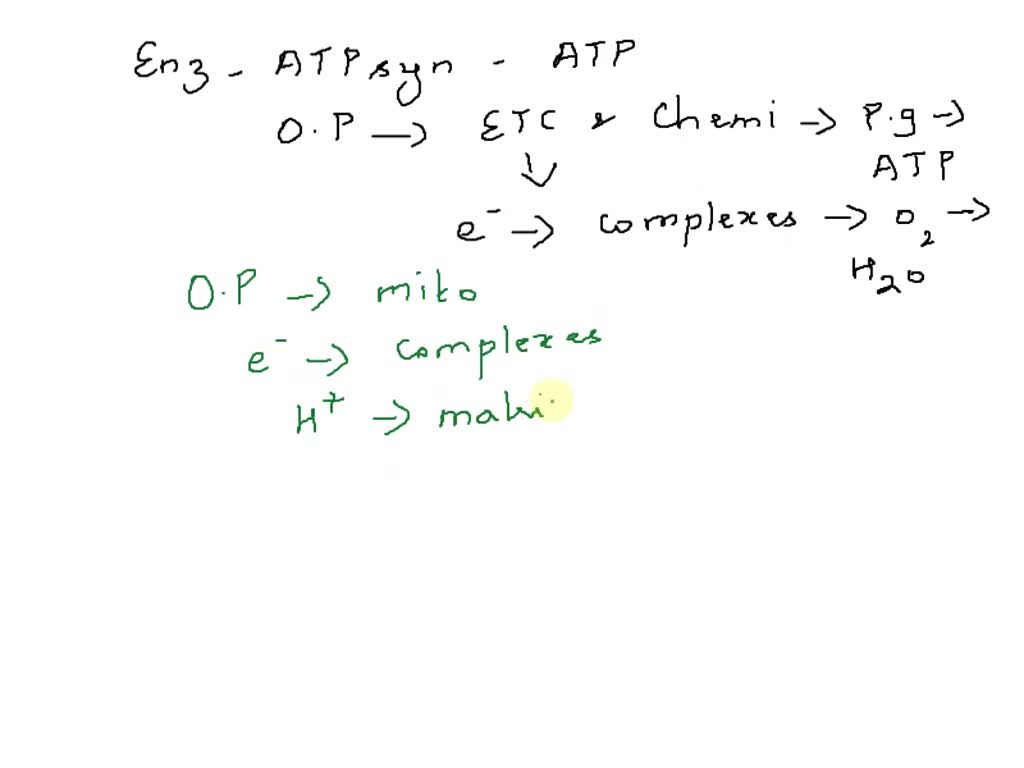 Enz - ATP syn - ATP
O.P → ETC & Chemi → P.g →
ATP
↓
e⁻ → complexes → O₂ →
H₂O
O.P → mito
e⁻ → complexes
H⁺ → matri